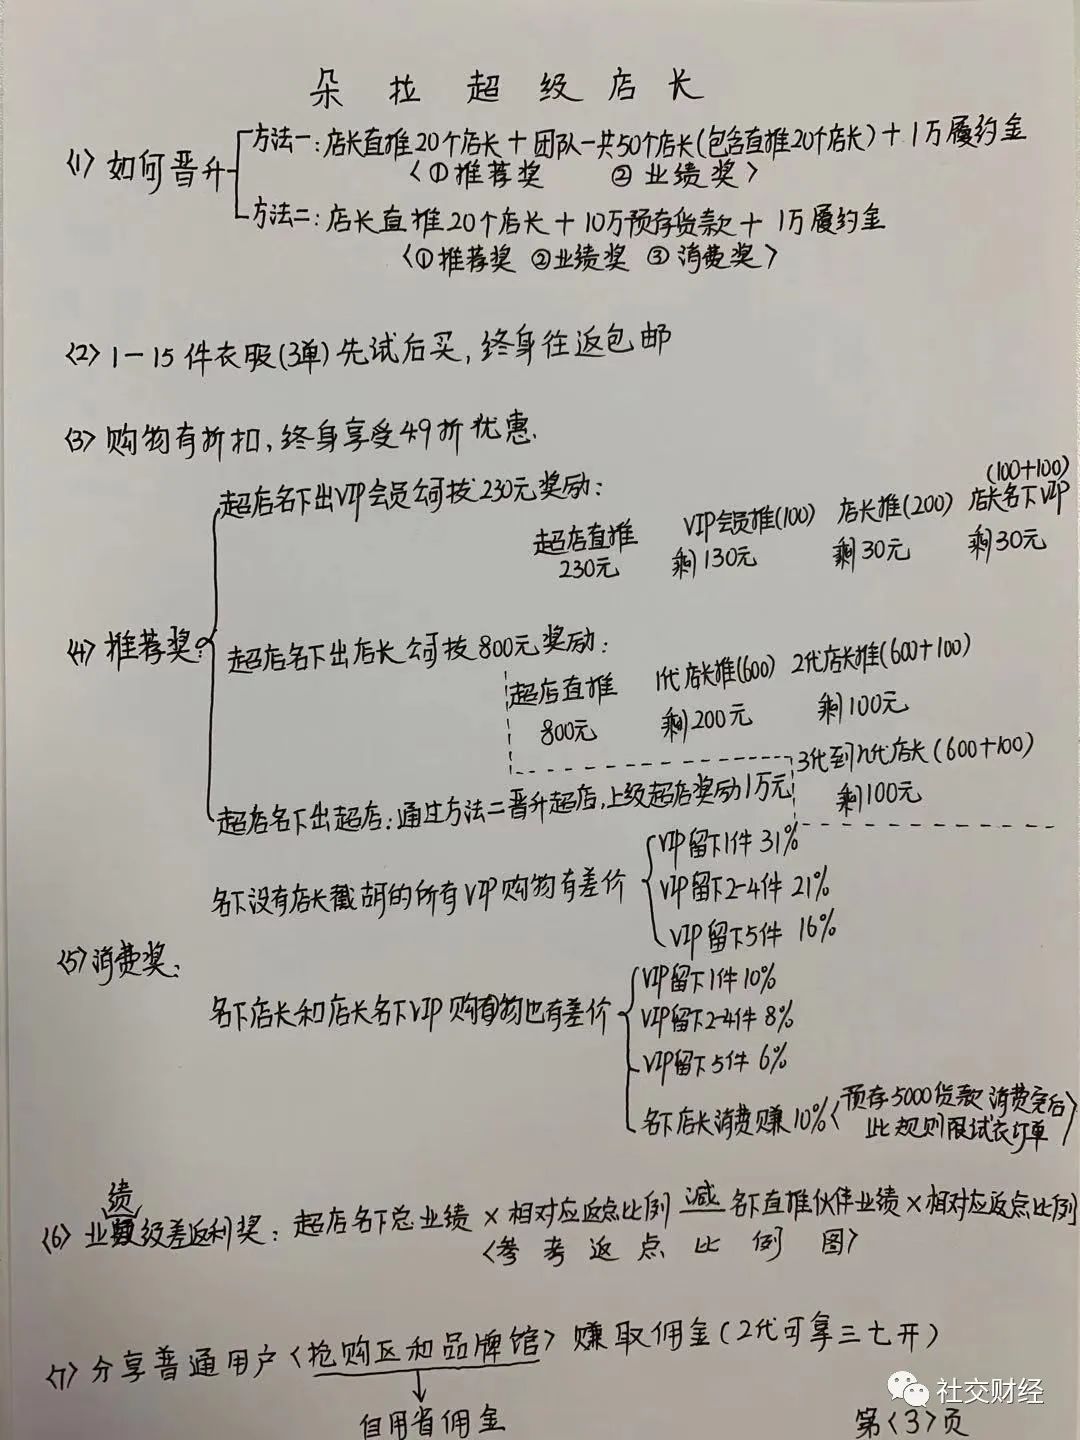 朵拉超级店长
<1>如何晋升
方法一:店长直推20个店长+团队一共50个店长(包含直推20个店长)+1万履约金
<①推荐奖 ②业绩奖>
方法二:店长直推20个店长+10万预存货款+1万履约金
<①推荐奖 ②业绩奖 ③消费奖>
<2>1-15件衣服(3单)先试后买,终身往返包邮
<3>购物有折扣,终身享受49折优惠.
<4>推荐奖:
超店名下出VIP会员公司拨230元奖励:
超店直推 VIP会员推(100) 店长推(200) (100+100)店长名下VIP
230元 剩130元 剩30元 剩30元
超店名下出店长公司拨800元奖励:
超店直推 1代店长推(600) 2代店长推(600+100)
800元 剩200元 剩100元
3代到n代店长(600+100)
剩100元
超店名下出超店:通过方法二晋升超店,上级超店奖励1万元
<5>消费奖:
名下没有店长截胡的所有VIP购物有差价
VIP留下1件31%
VIP留下2-4件21%
VIP留下5件 16%
名下店长和店长名下VIP购物也有差价
VIP留下1件10%
VIP留下2-4件8%
VIP留下5件6%
名下店长消费赚10%<预存5000货款消费完后
此规则限试衣订单>
<6>业绩级差返利奖:超店名下总业绩×相对应返点比例 减 名下直推伙伴业绩×相对应返点比例
<参考返点比例图>
<7>分享普通用户<抢购区和品牌馆>赚取佣金(2代可拿三七开)
自用省佣金
第<3>页
社交财经